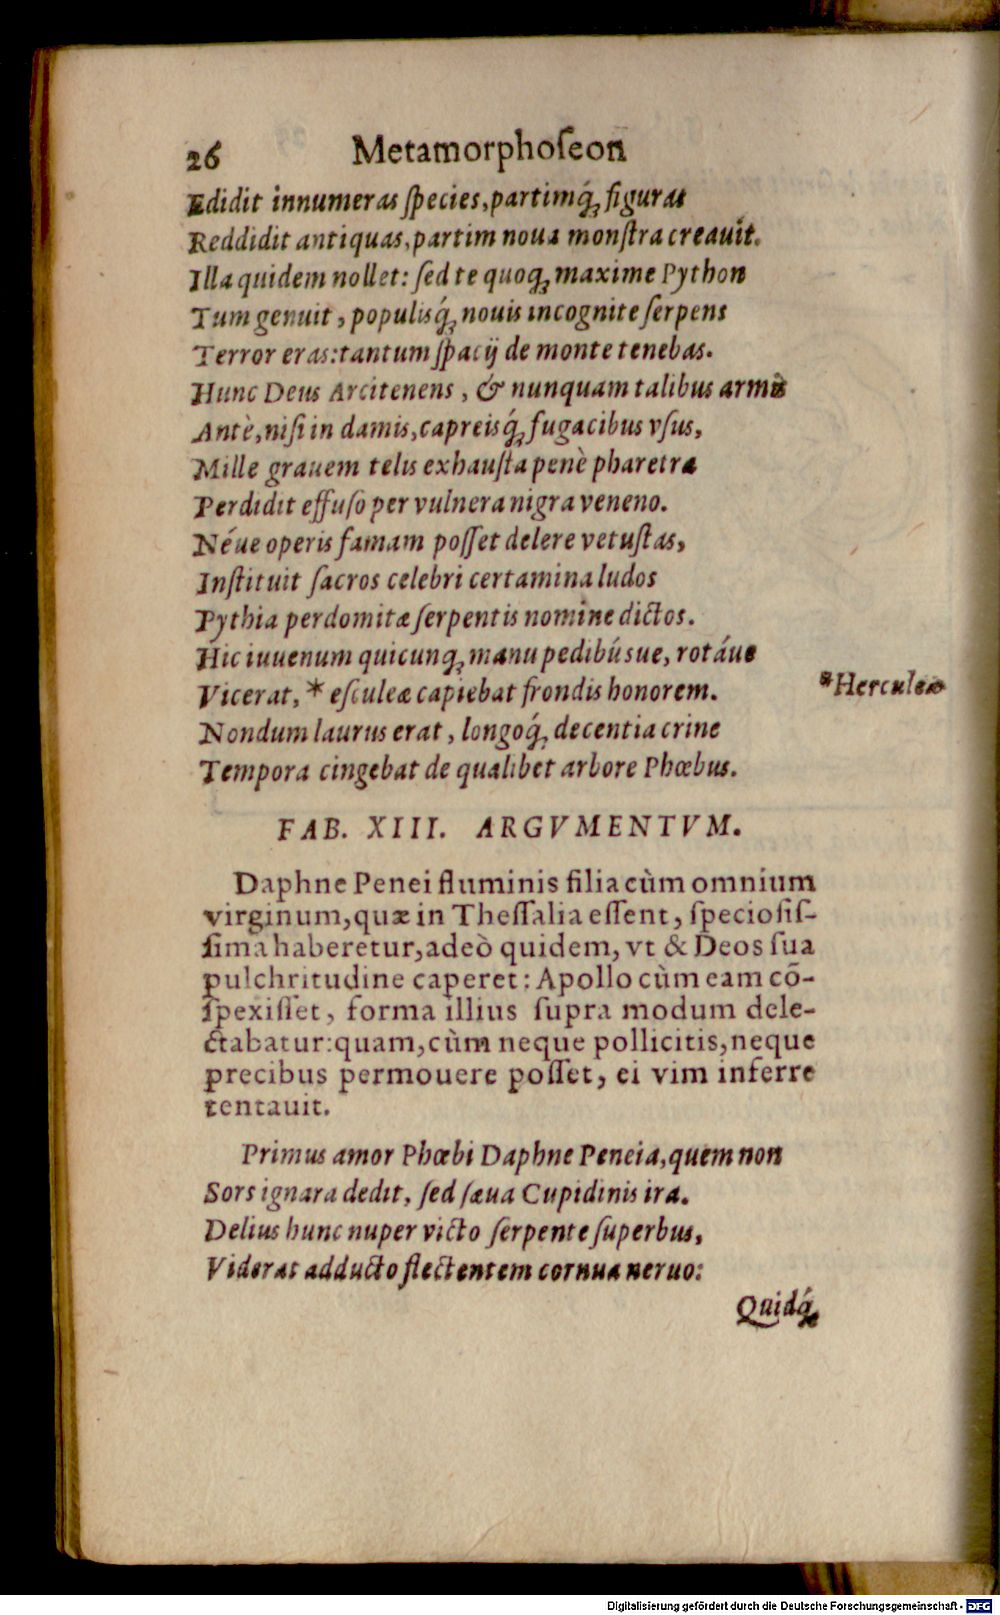 26 Metamorphoſeon
Edidit innumeras ſpecies, partimq́ꝫ figuras
Reddidit antiquas, partim noua monſtra creauit.
Illa quidem nollet: ſed te quoqꝫ maxime Python
Tum genuit, populisq́ꝫ nouis incognite ſerpens
Terror eras: tantum ſpacij de monte tenebas.
Hunc Deus Arcitenens, & nunquam talibus armis
Antè, niſi in damis, capreisq́ꝫ fugacibus vſus,
Mille grauem telis exhauſta penè pharetra
Perdidit effuſo per vulnera nigra veneno.
Néue operis famam poſſet delere vetuſtas,
Inſtituit ſacros celebri certamina ludos
Pythia perdomitæ ſerpentis nomine dictos.
Hic iuuenum quicunqꝫ manu pedibúsue, rotáue
Vicerat, * eſculeæ capiebat frondis honorem.
*Herculeæ
Nondum laurus erat, longoq́ꝫ decentia crine
Tempora cingebat de qualibet arbore Phœbus.
FAB. XIII. ARGVMENTVM.
Daphne Penei fluminis filia cùm omnium
virginum, quæ in Theſſalia eſſent, ſpecioſiſ-
ſima haberetur, adeò quidem, vt & Deos ſua
pulchritudine caperet: Apollo cùm eam cō-
ſpexiſſet, forma illius ſupra modum dele-
ctabatur: quam, cùm neque pollicitis, neque
precibus permouere poſſet, ei vim inferre
tentauit.
Primus amor Phœbi Daphne Peneia, quem non
Sors ignara dedit, ſed ſæua Cupidinis ira.
Delius hunc nuper victo ſerpente ſuperbus,
Viderat adducto flectentem cornua neruo:
Quidq́ꝫ
Digitalisierung gefördert durch die Deutsche Forschungsgemeinschaft - DFG